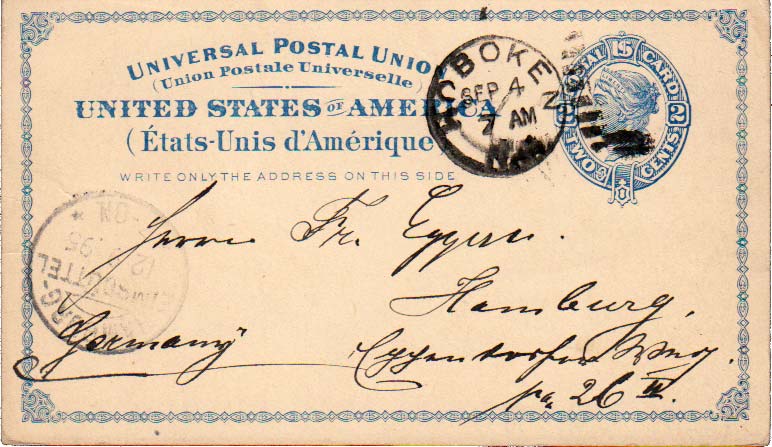 UNIVERSAL POSTAL UNION
(Union Postale Universelle)
UNITED STATES OF AMERICA
(États-Unis d'Amérique)
WRITE ONLY THE ADDRESS ON THIS SIDE
HOBOKEN N.J.
SEP 4
7 AM
POSTAL CARD
TWO CENTS
2
HAMBURG
EIMSBÜTTEL
12 95
Herrn Fr. Eggers.
Hamburg,
Germany
Eppendorfer Weg.
26 II.